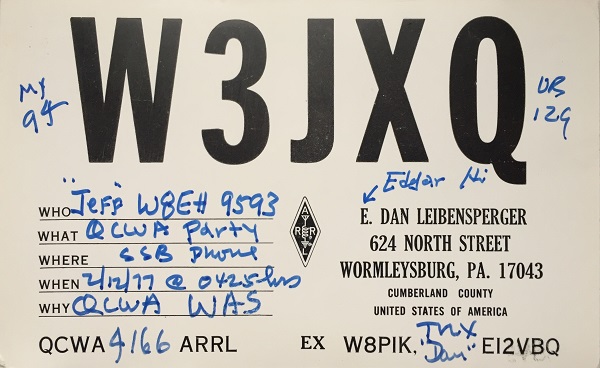 W3JXQ
MY
94
UR
129
Edgar Hi
WHO "Jeff" W8EH 9593
WHAT QCWA Party
WHERE SSB Phone
WHEN 2/12/77 @ 0425 hrs
WHY QCWA WAS
QCWA 4166 ARRL
A
R R
L
E. DAN LEIBENSPERGER
624 NORTH STREET
WORMLEYSBURG, PA. 17043
CUMBERLAND COUNTY
UNITED STATES OF AMERICA
TNX
EX W8PIK, "Dan" EI2VBQ